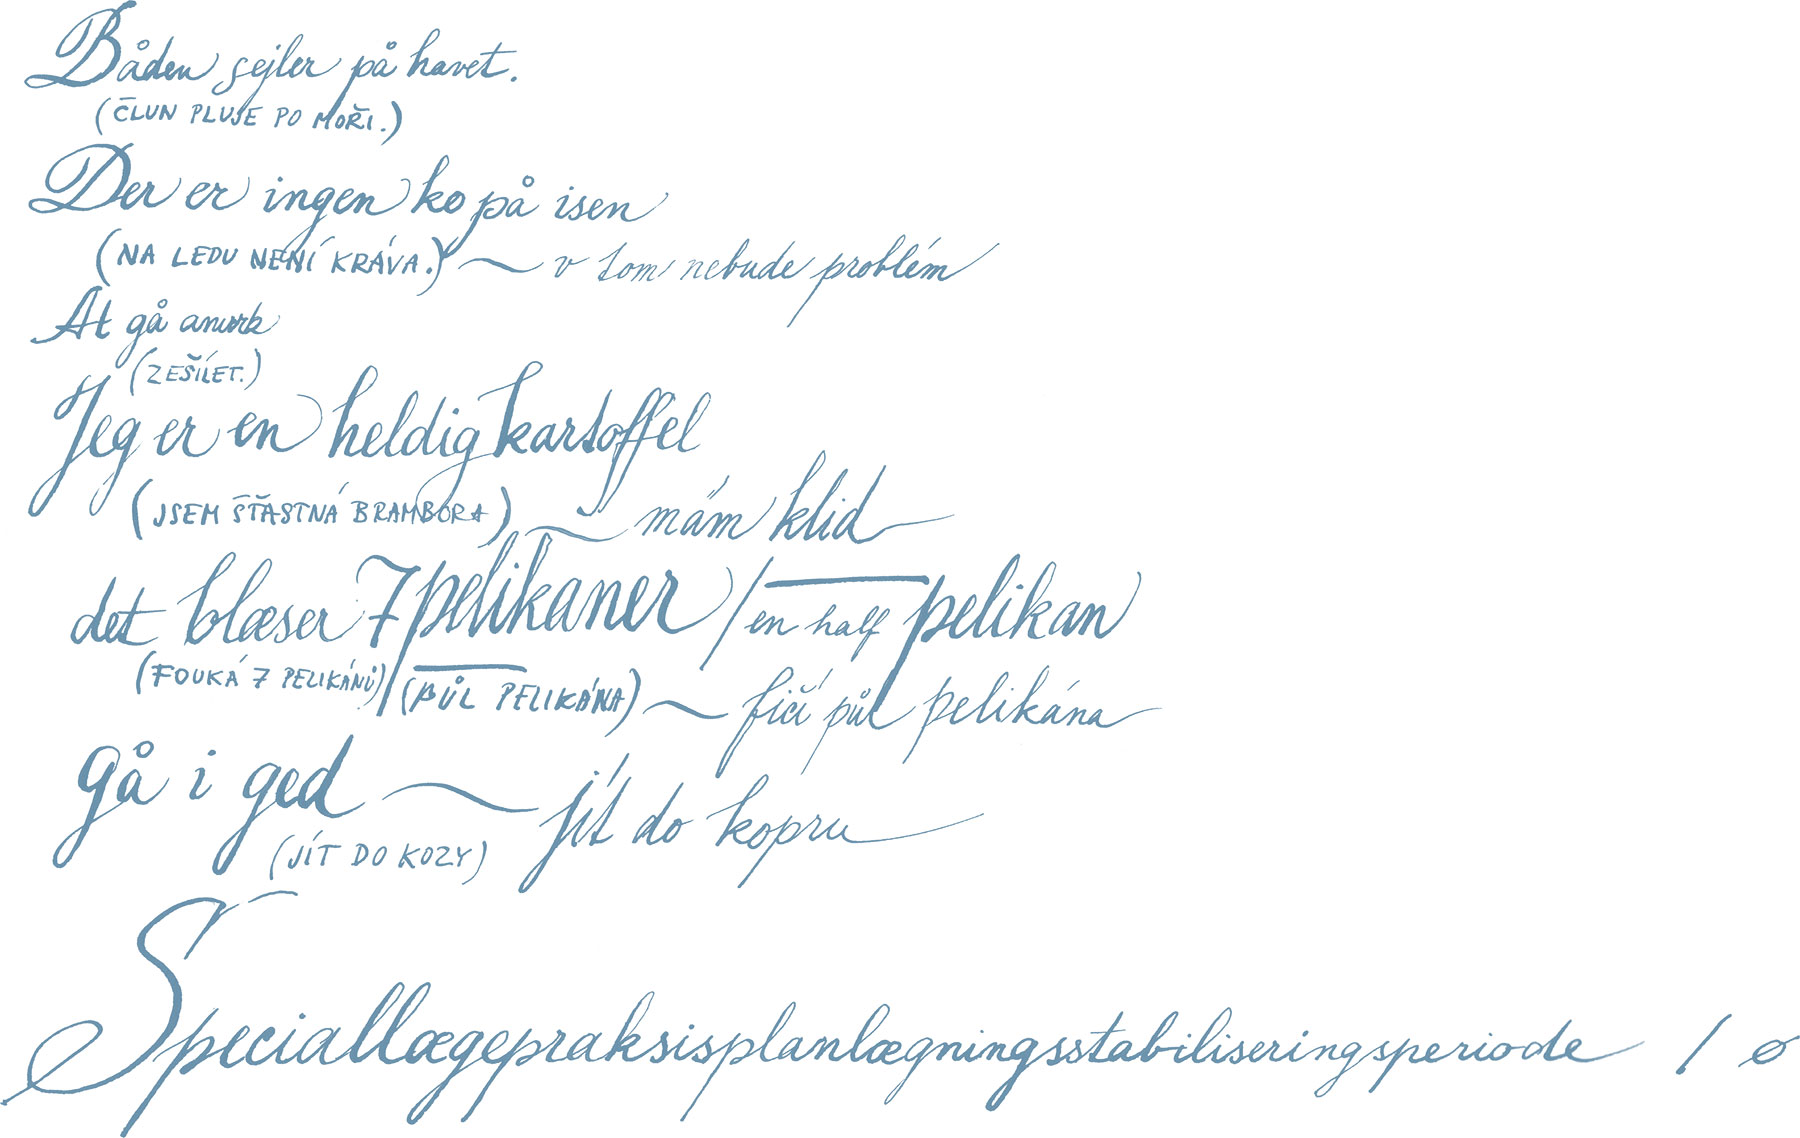 Båden sejler på havet.
(ČLUN PLUJE PO MOŘI.)
Der er ingen ko på isen
(NA LEDU NENÍ KRÁVA.) ~ v tom nebude problém
At gå amok
(ZEŠÍLET.)
Jeg er en heldig kartoffel
(JSEM ŠŤASTNÁ BRAMBORA) ~ mám klid
det blæser 7 pelikaner / en half pelikan
(FOUKÁ 7 PELIKÁNŮ) / (PŮL PELIKÁNA) ~ fičí půl pelikána
gå i ged ~ jít do kopru
(JÍT DO KOZY)
Speciallægepraksisplanlægningsstabiliseringsperiode / ø